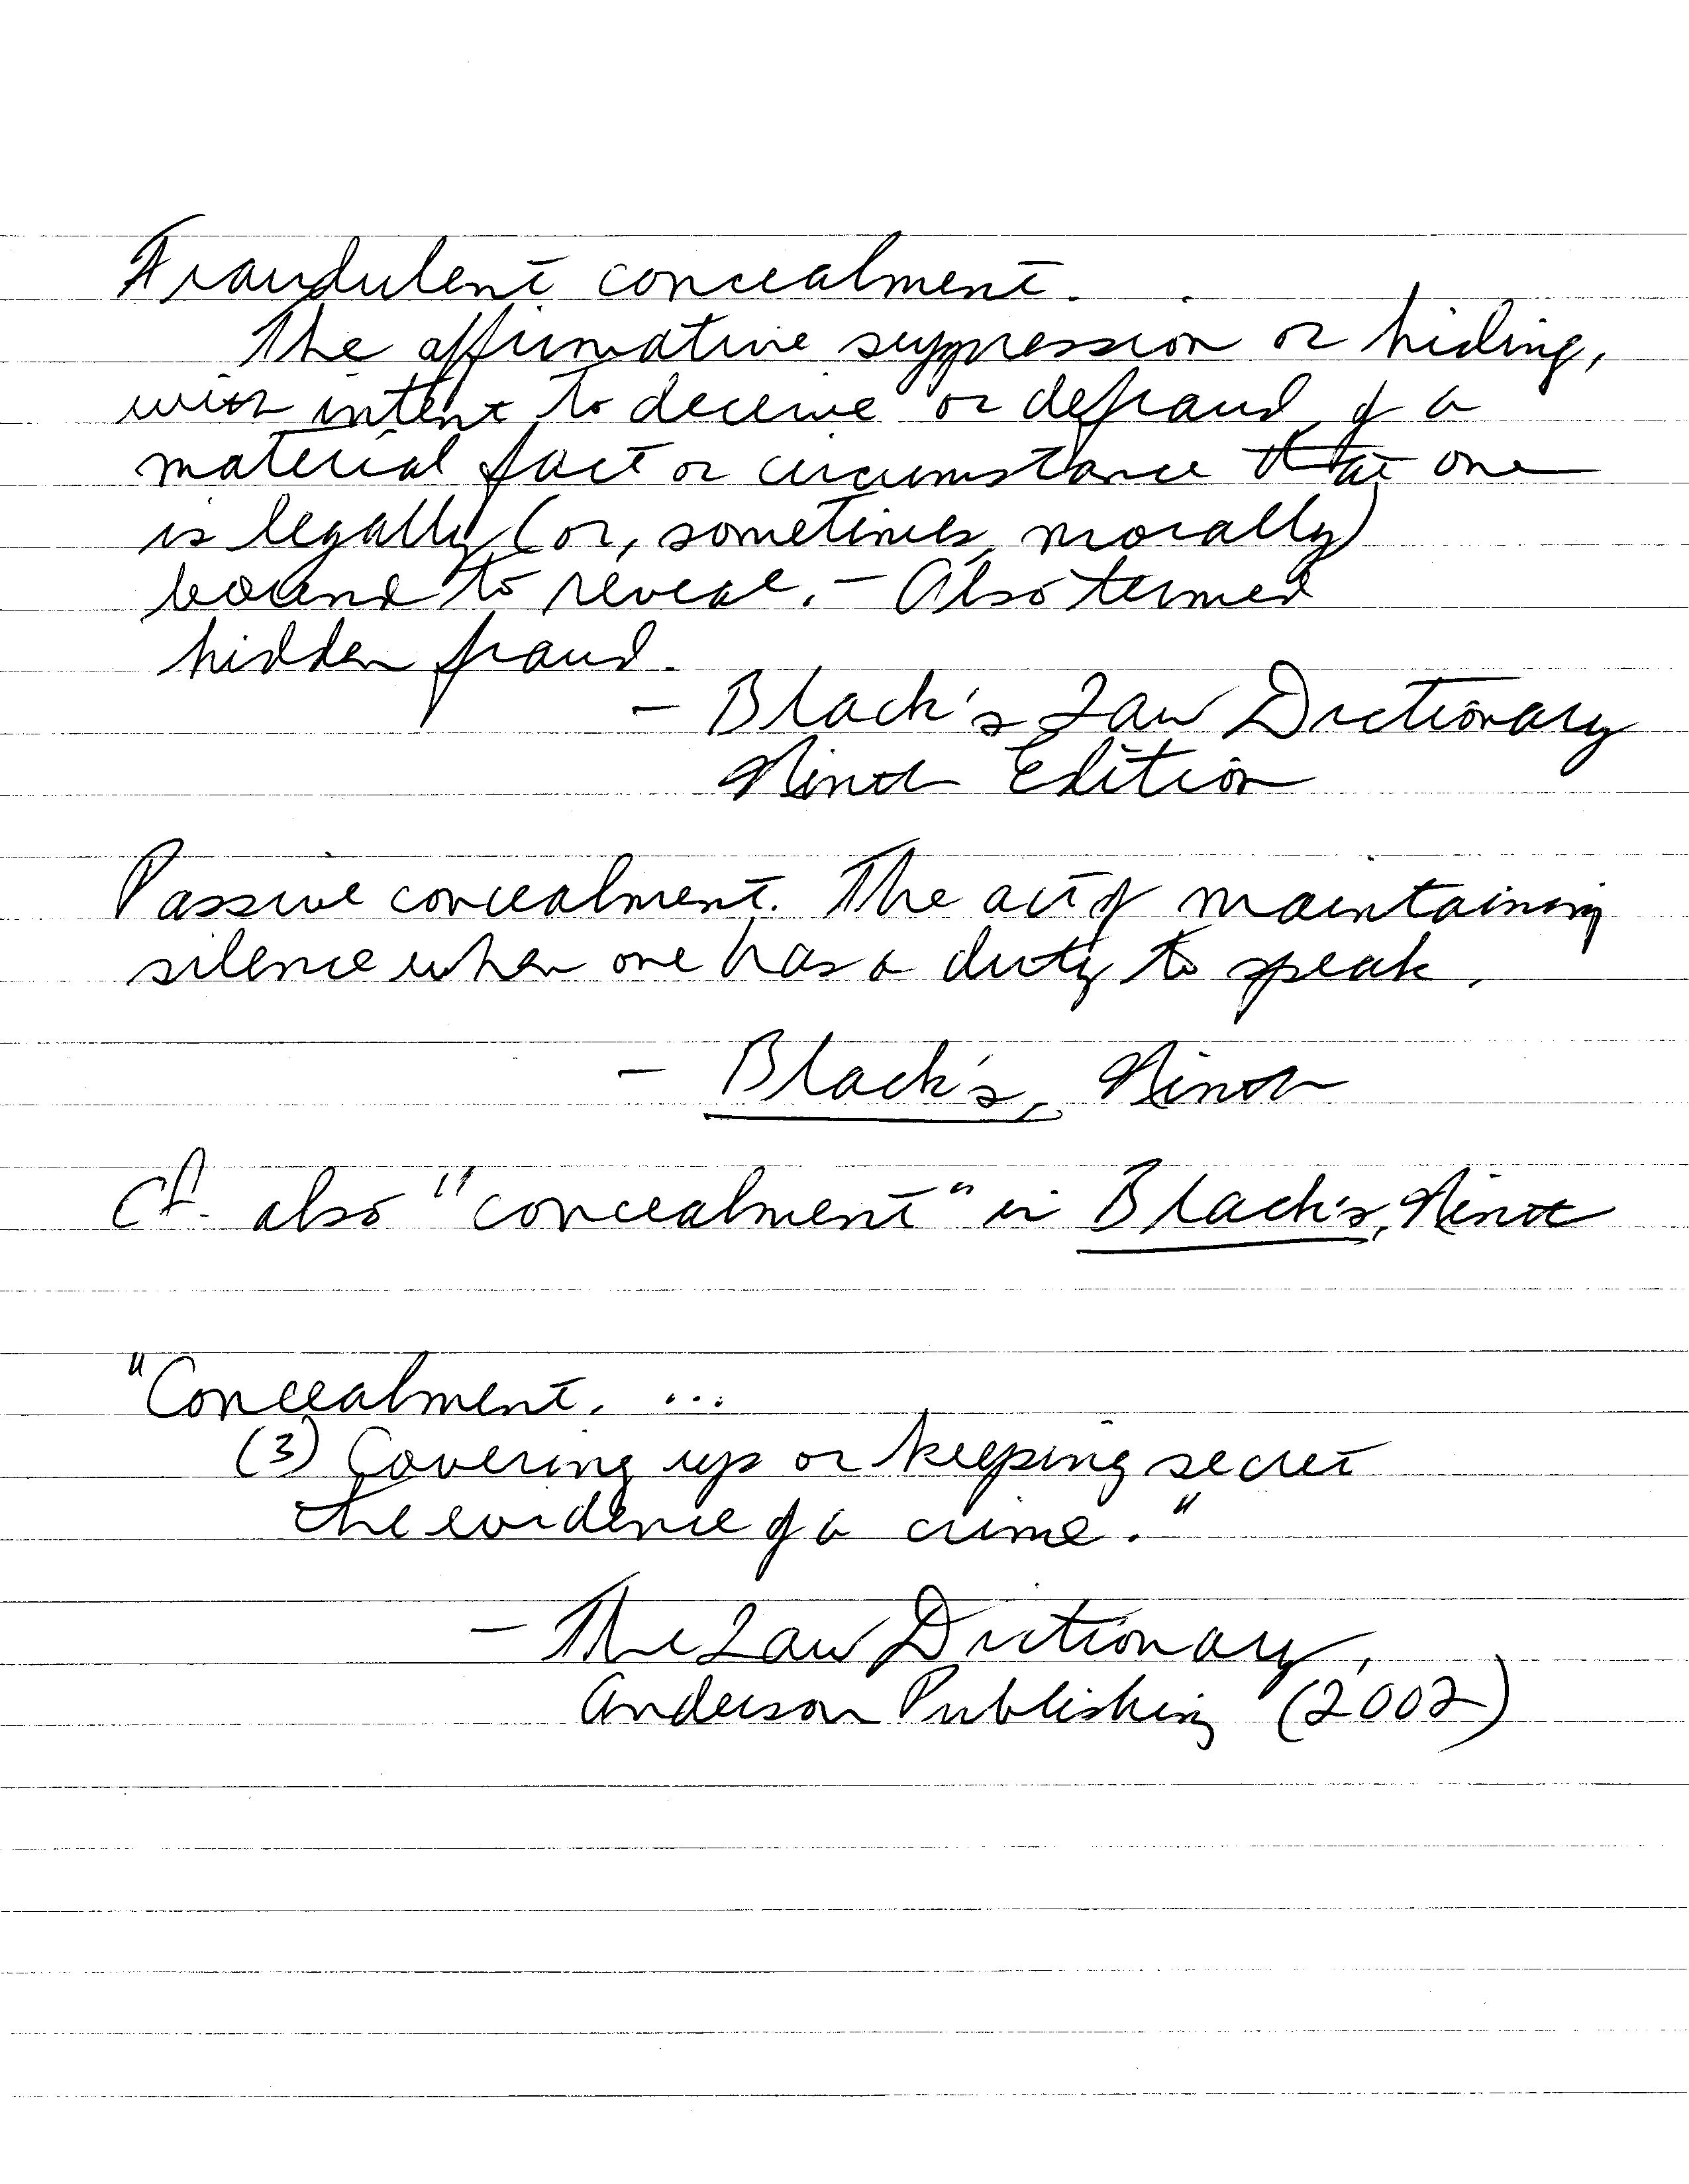 Fraudulent concealment.
The affirmative suppression or hiding,
with intent to deceive or defraud, of a
material fact or circumstance that one
is legally (or, sometimes, morally)
bound to reveal. – Also termed
hidden fraud.
– Black's Law Dictionary
Ninth Edition
Passive concealment. The act of maintaining
silence when one has a duty to speak.
– Black's, Ninth
Cf. also "concealment" in Black's, Ninth
"Concealment. ...
(3) Covering up or keeping secret
the evidence of a crime."
– The Law Dictionary,
Anderson Publishing (2002)